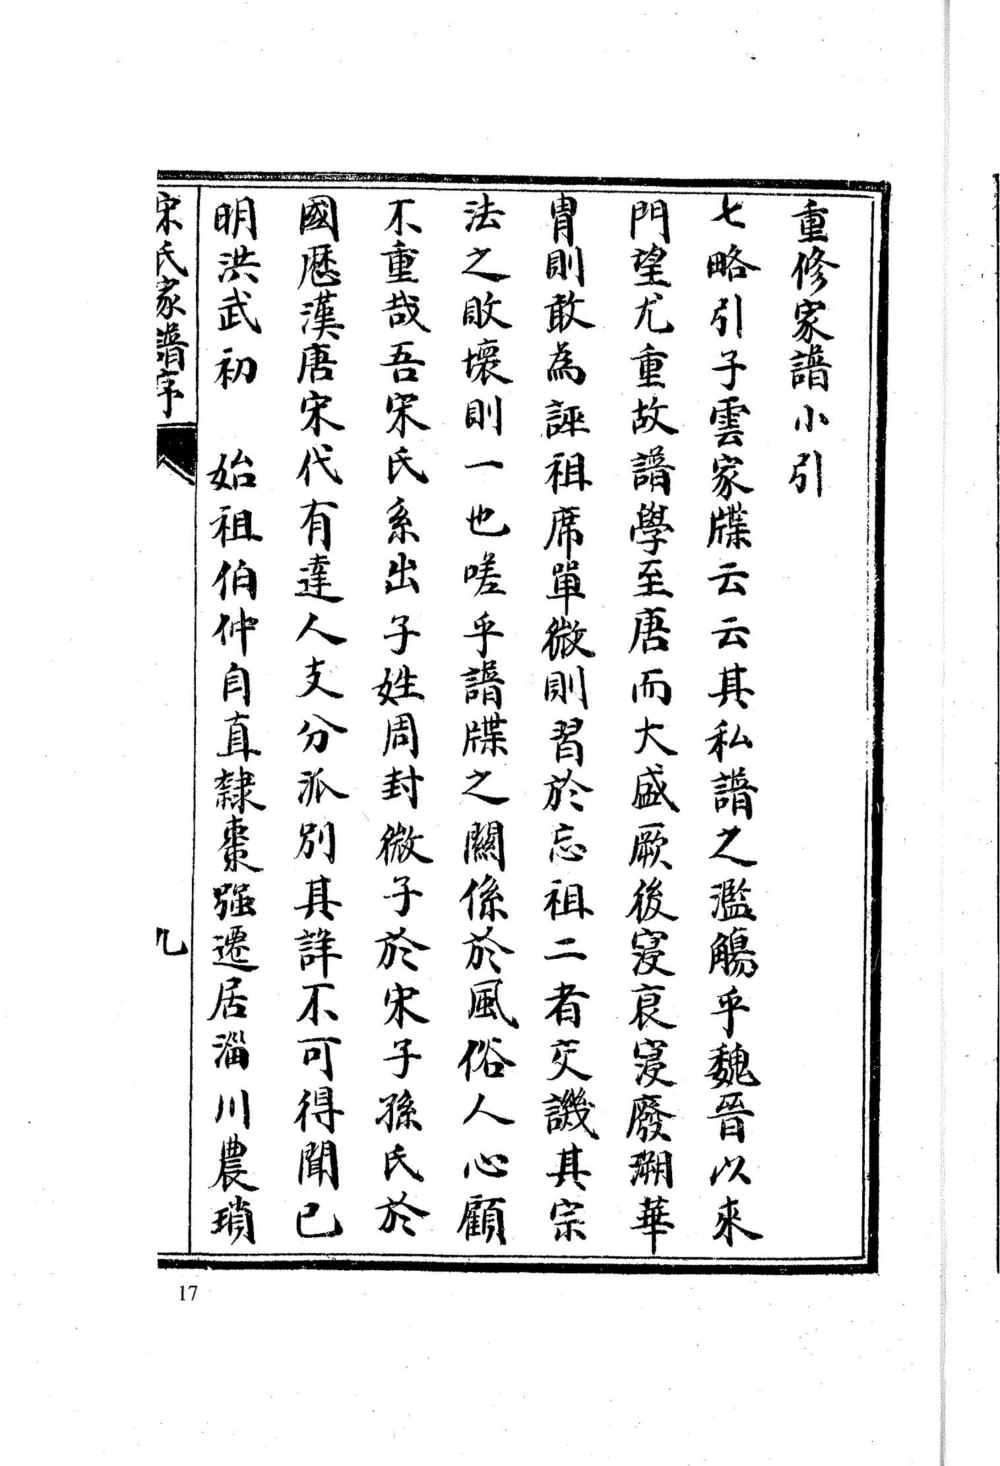 重修家譜小引
七略引子雲家牒云云其私譜之濫觴乎魏晉以來
門望尤重故譜學至唐而大盛厥後寖衰寖廢溯華
胄則敢為誣祖席單微則習於忘祖二者交譏其宗
法之敗壞則一也嗟乎譜牒之關係於風俗人心顧
不重哉吾宋氏系出子姓周封微子於宋子孫氏於
國歷漢唐宋代有達人支分派別其詳不可得聞已
明洪武初　始祖伯仲自直隸棗强遷居淄川農瑣
宋氏家譜序
九
17